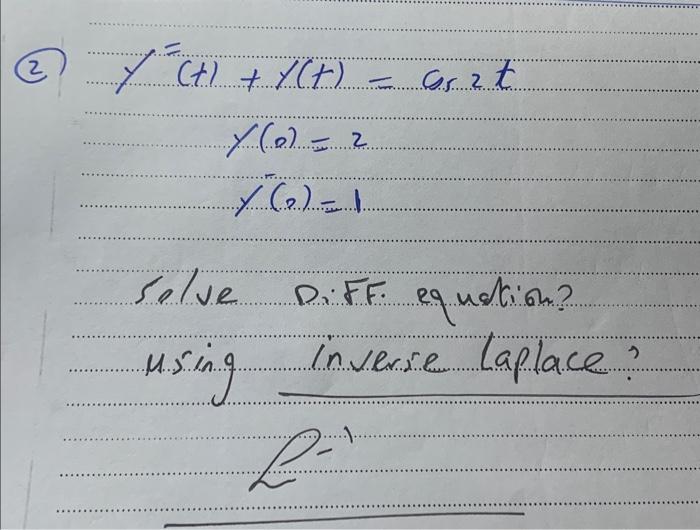 ② y⁼(t) + y(t) = cos 2t
y(0) = 2
y⁻(0) = 1
solve Diff. equation?
using inverse Laplace?
ℒ⁻¹